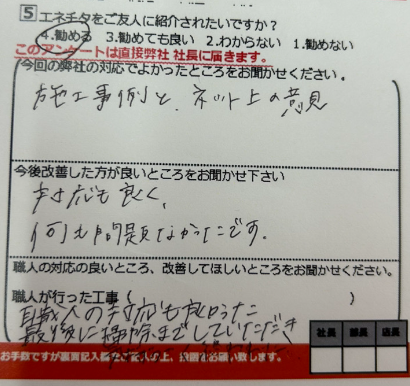 5 エネチタをご友人に紹介されたいですか?
4.勧める 3.勧めても良い 2.わからない 1.勧めない
このアンケートは直接弊社 社長に届きます。
今回の弊社の対応でよかったところをお聞かせください。
施工事例と、ネット上の意見
今後改善した方が良いところをお聞かせ下さい
対応も良く、
何も問題なかったです。
職人の対応の良いところ、改善してほしいところをお聞かせください。
職人が行った工事( )
職人の対応も良かった
最後に掃除までしていただき
社長 部長 店長
お手数ですが裏面記入